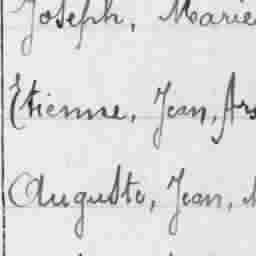 Joseph, Marie
Etienne, Jean, Ars
Auguste, Jean,